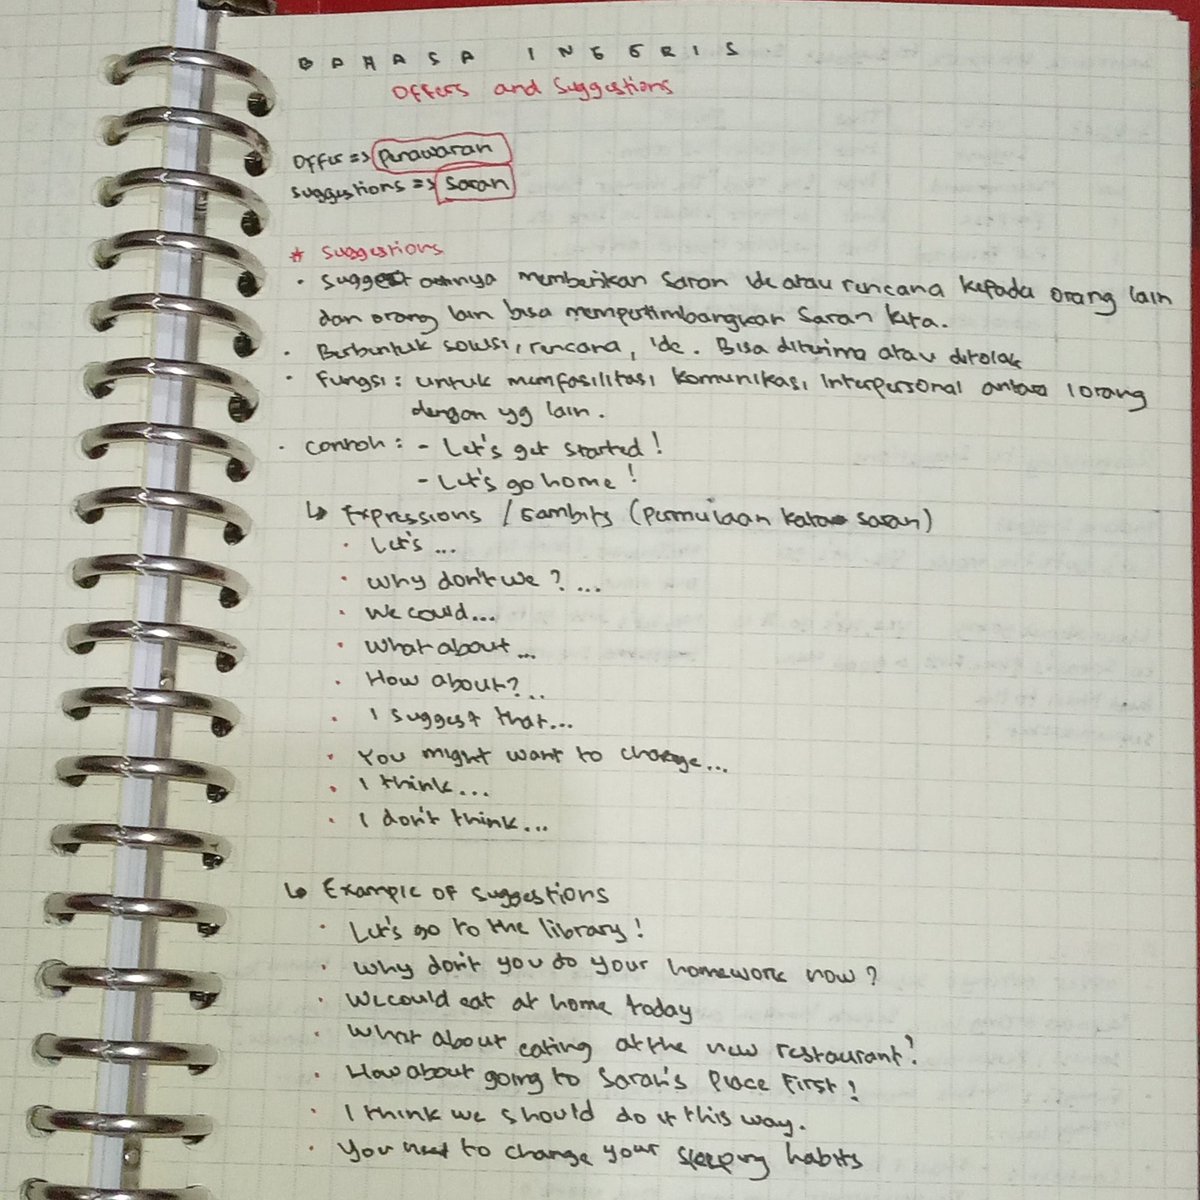 BAHASA INGGRIS
Offers and Suggestions
Offer => Penawaran
Suggestions => Saran
* Suggestions
• Suggest artinya memberikan saran ide atau rencana kepada orang lain
dan orang lain bisa mempertimbangkan saran kita.
• Berbentuk solusi, rencana, ide. Bisa diterima atau ditolak
• Fungsi : untuk memfasilitasi komunikasi interpersonal antara 1 orang
dengan yg lain.
• Contoh : - Let's get started!
- Let's go home!
↳ Expressions / Gambits (permulaan kata saran)
• Let's ...
• Why don't we ? ...
• We could...
• What about ...
• How about? ...
• I suggest that...
• You might want to change...
• I think...
• I don't think...
↳ Example of suggestions
• Let's go to the library!
• Why don't you do your homework now?
• We could eat at home today
• What about eating at the new restaurant?
• How about going to Sarah's place first!
• I think we should do it this way.
• You need to change your sleeping habits